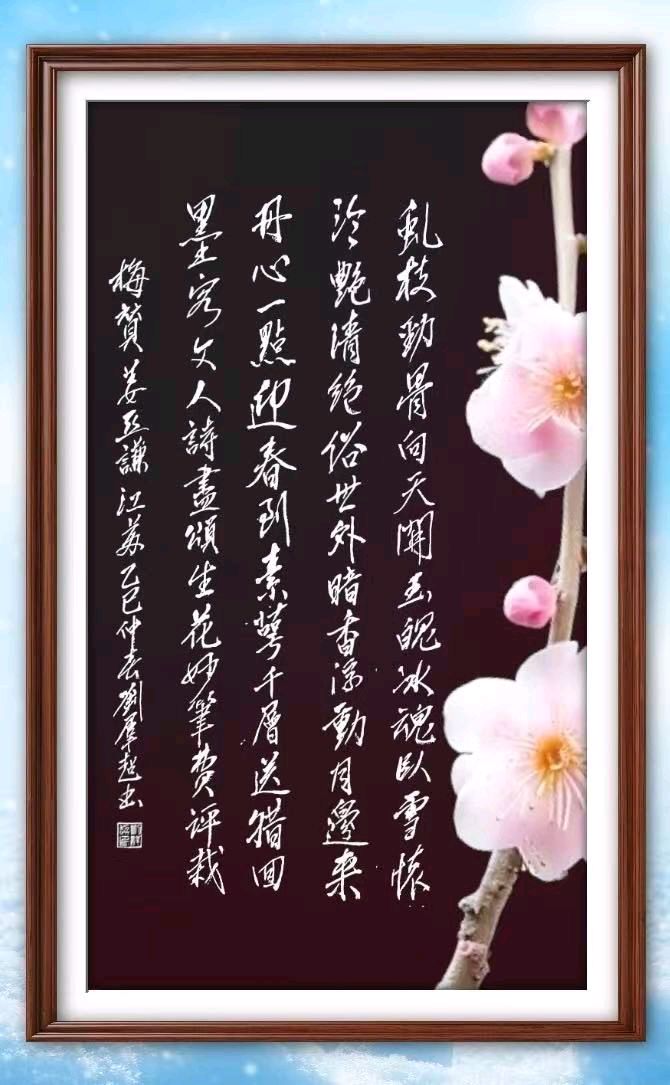 虬枝勁骨向天開玉魄冰魂臥雪懷
冷艷清絕俗世外暗香浮動月邊來
丹心一點迎春到素萼千層送腊回
墨客文人詩盡頌生花妙筆費評裁
梅贊姜亞謙江蘇乙巳仲春劉超書